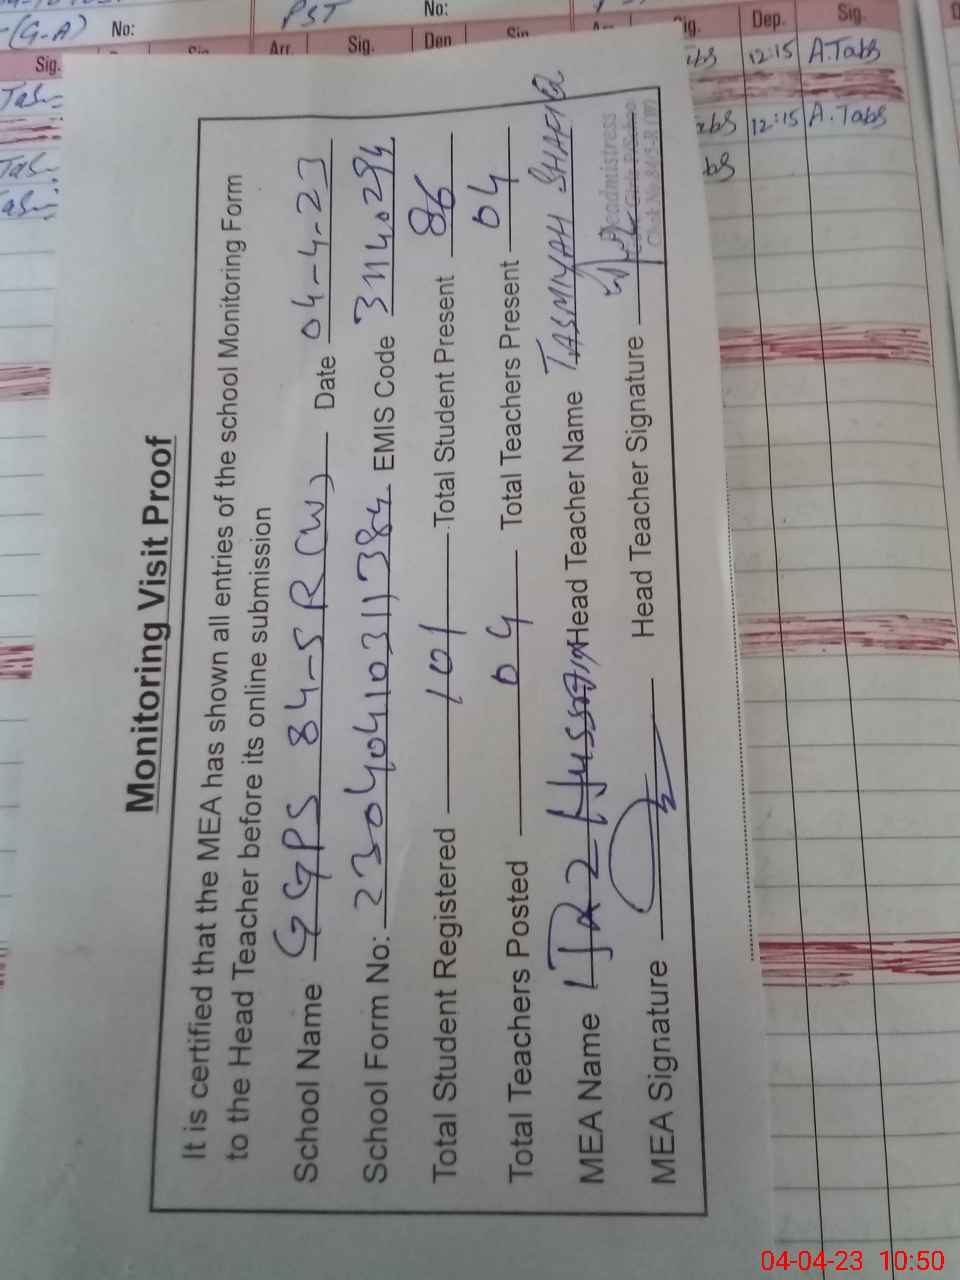 (G-A) No:
PST No:
Sig. Arr. Sig. Sig. Dep. Sig.
12:15 A.Tabs
12:15 A.Tabs
Monitoring Visit Proof
It is certified that the MEA has shown all entries of the school Monitoring Form
to the Head Teacher before its online submission
School Name GGPS 84-5R (W) Date 04-4-23
School Form No: 2304041031384 EMIS Code 31140294
Total Student Registered 101 Total Student Present 86
Total Teachers Posted 04 Total Teachers Present 04
MEA Name Hussain Head Teacher Name TASMIYAH SHAFIQ
MEA Signature Head Teacher Signature
Headmistress
04-04-23 10:50